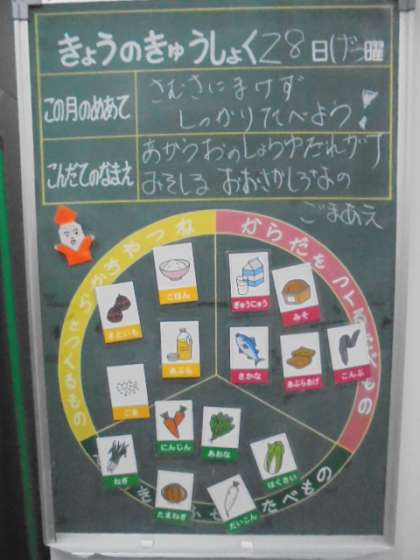 きょうのきゅうしょく 28日(げつ曜
この月のめあて
さむさにまけず
しっかりたべよう!
こんだてのなまえ
あかうおのしょうゆだれがけ
みそしる おおさかしろなの
ごまあえ
ねつやちからをつくるもの
からだをつくるもの
ごはん
ぎゅうにゅう
みそ
さといも
あぶら
さかな
あぶらあげ
こんぶ
ごま
にんじん
あおな
ねぎ
たまねぎ
だいこん
はくさい
たべもの